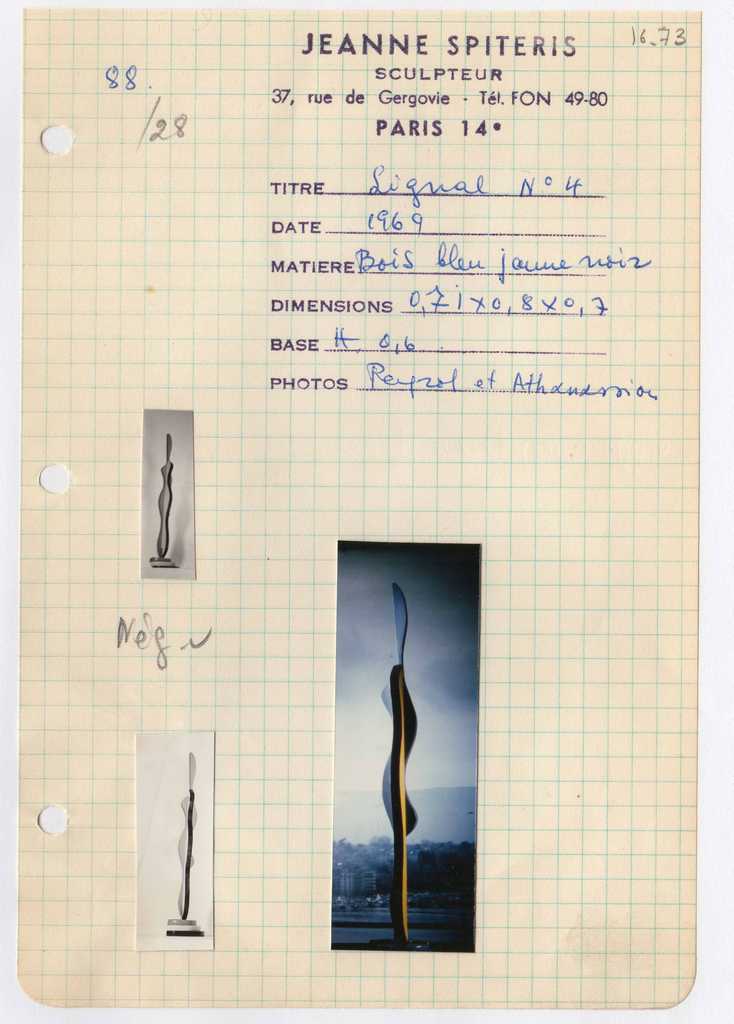 16.73
JEANNE SPITERIS
88.
SCULPTEUR
/28
37, rue de Gergovie - Tél. FON 49-80
PARIS 14e
TITRE Signal N° 4
DATE 1969
MATIERE Bois bleu jaune noir
DIMENSIONS 0,71 x 0,8 x 0,7
BASE H. 0,6
PHOTOS Peyrol et Athanassiou
Nég